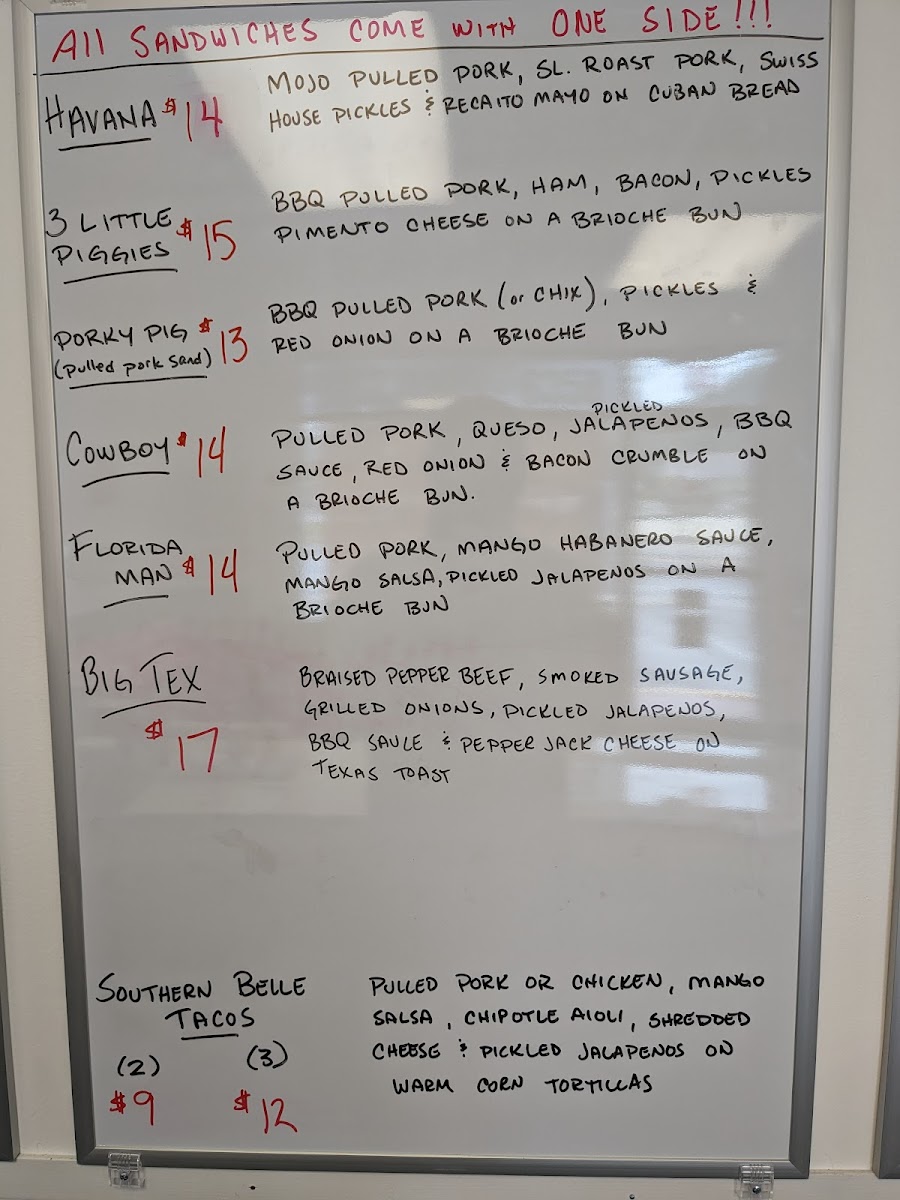 All SANDWICHES COME WITH ONE SIDE!!!
HAVANA $14
MOJO PULLED PORK, SL. ROAST PORK, SWISS
HOUSE PICKLES & RECAITO MAYO ON CUBAN BREAD
3 LITTLE
PIGGIES $15
BBQ PULLED PORK, HAM, BACON, PICKLES
PIMENTO CHEESE ON A BRIOCHE BUN
PORKY PIG $13
(pulled pork sand)
BBQ PULLED PORK (or CHIX), PICKLES &
RED ONION ON A BRIOCHE BUN
COWBOY $14
PICKLED
PULLED PORK, QUESO, JALAPENOS, BBQ
SAUCE, RED ONION & BACON CRUMBLE ON
A BRIOCHE BUN.
FLORIDA
MAN $14
PULLED PORK, MANGO HABANERO SAUCE,
MANGO SALSA, PICKLED JALAPENOS ON A
BRIOCHE BUN
BIG TEX
$17
BRAISED PEPPER BEEF, SMOKED SAUSAGE,
GRILLED ONIONS, PICKLED JALAPENOS,
BBQ SAUCE & PEPPER JACK CHEESE ON
TEXAS TOAST
SOUTHERN BELLE
TACOS
(2) (3)
$9 $12
PULLED PORK OR CHICKEN, MANGO
SALSA, CHIPOTLE AIOLI, SHREDDED
CHEESE & PICKLED JALAPENOS ON
WARM CORN TORTILLAS